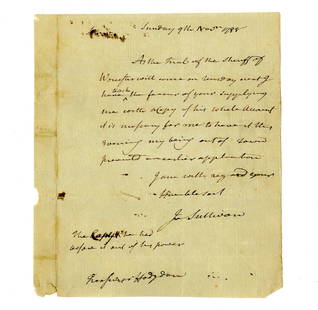 Sunday 9th Novr 1788
As the Trial of the Sheriff of
Worcester will come on Tuesday next I
beg
have the favor of your supplying
me with a Copy of his whole Account
it is necessary for me to have it this
evening my being out of Town
prevented an earlier application
I am with regard your
Humble Sert
Ja Sullivan
The Copy he had
before is out of his power
Treasurer Hodgdon